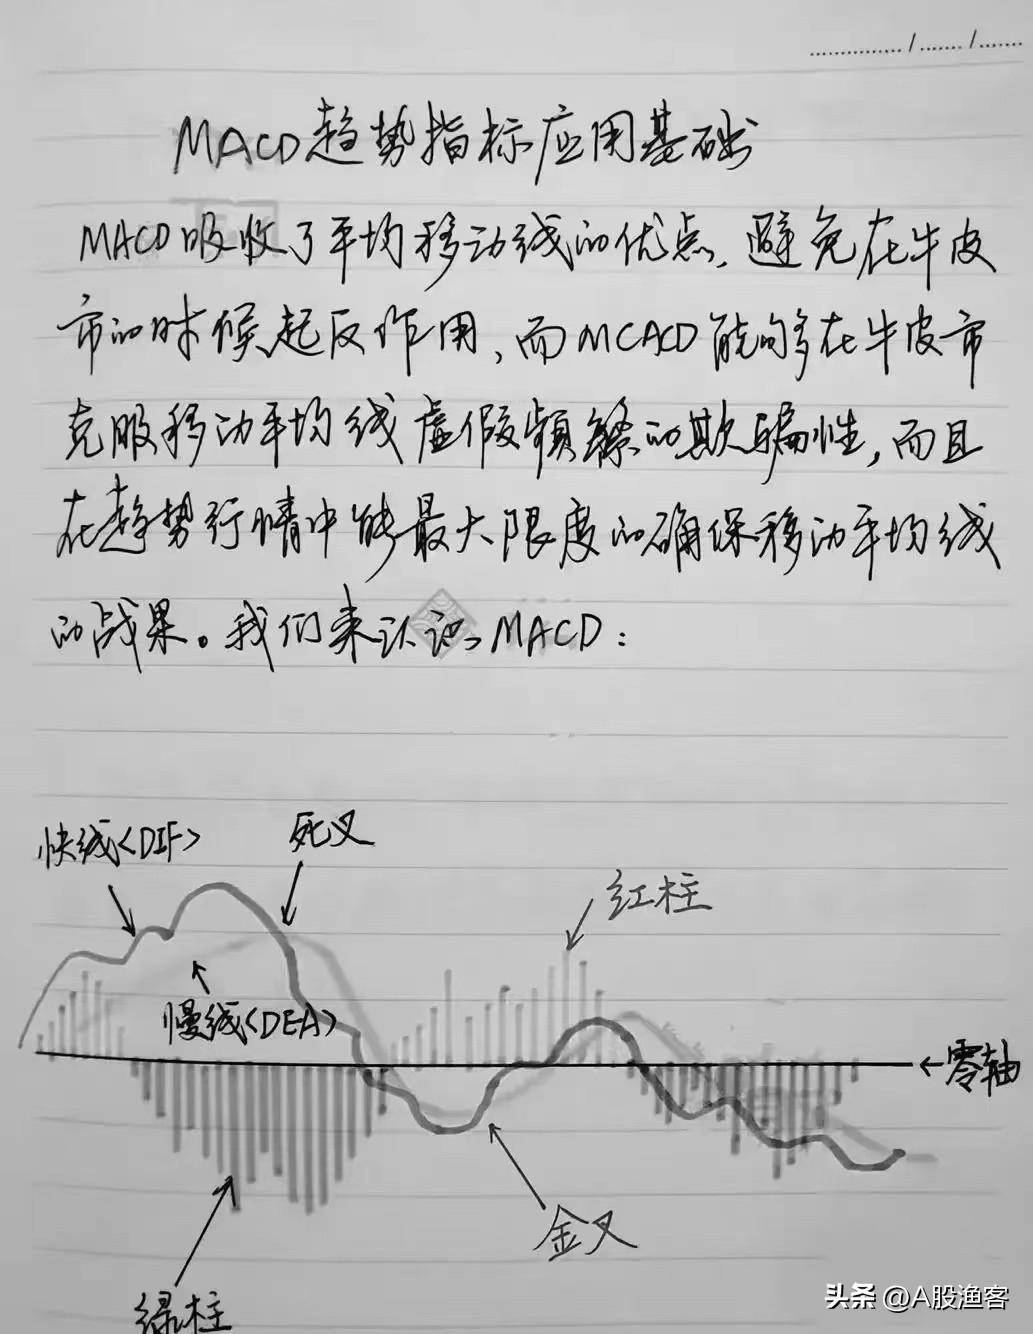 MACD趋势指标应用基础
MACD吸收了平均移动线的优点，避免在牛皮
市的时候起反作用，而MCACD能够在牛皮市
克服移动平均线虚假频繁的欺骗性，而且
在趋势行情中能最大限度的确保移动平均线
的战果。我们来认识MACD：
快线<DIF>
死叉
红柱
慢线<DEA>
←零轴
金叉
绿柱
头条 @A股渔客